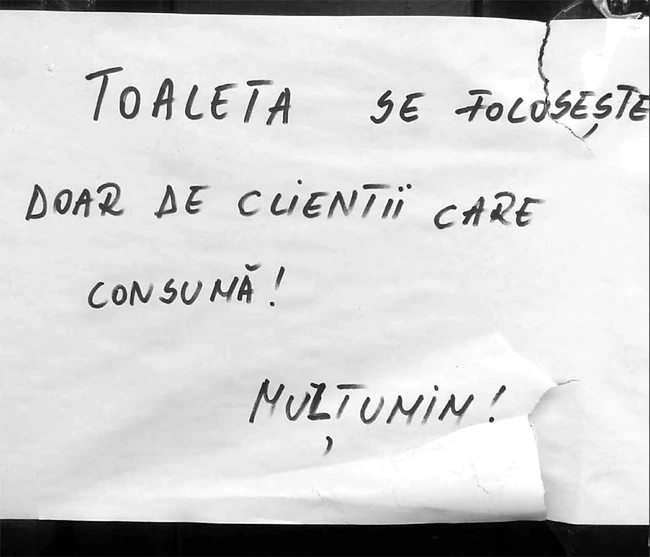 TOALETA SE FOLOSEȘTE
DOAR DE CLIENTII CARE
CONSUMĂ!
MULȚUMIN!